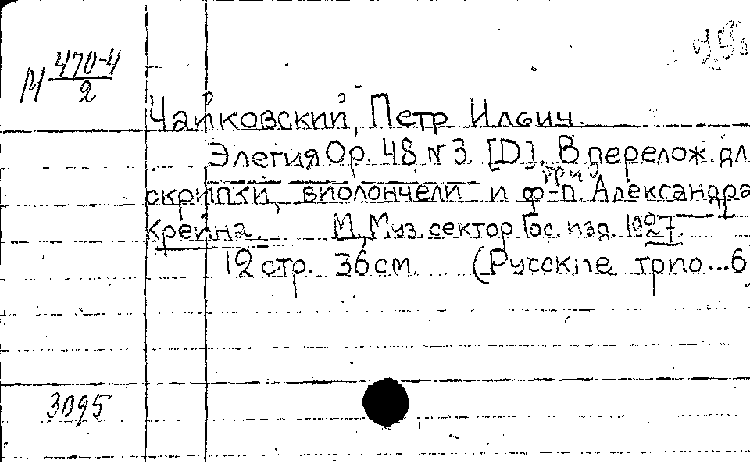 М 470-4
2
Чайковский, Петр Ильич.
Элегия Op. 48 № 3 [D]. В перелож. дл
трио
скрипки, виолончели и ф-п. Александра
Крейна. М. Муз. сектор Гос. изд. 1927.
12 стр. 36 см. (Русские трио...6
3095